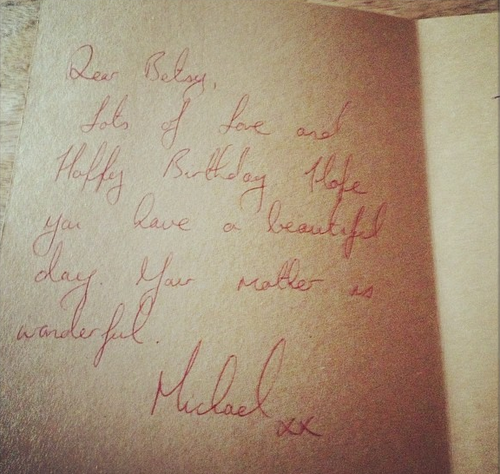 Dear Betsy,
Lots of love and
Happy Birthday Hope
you have a beautiful
day. Your mother is
wonderful.
Michael
xx